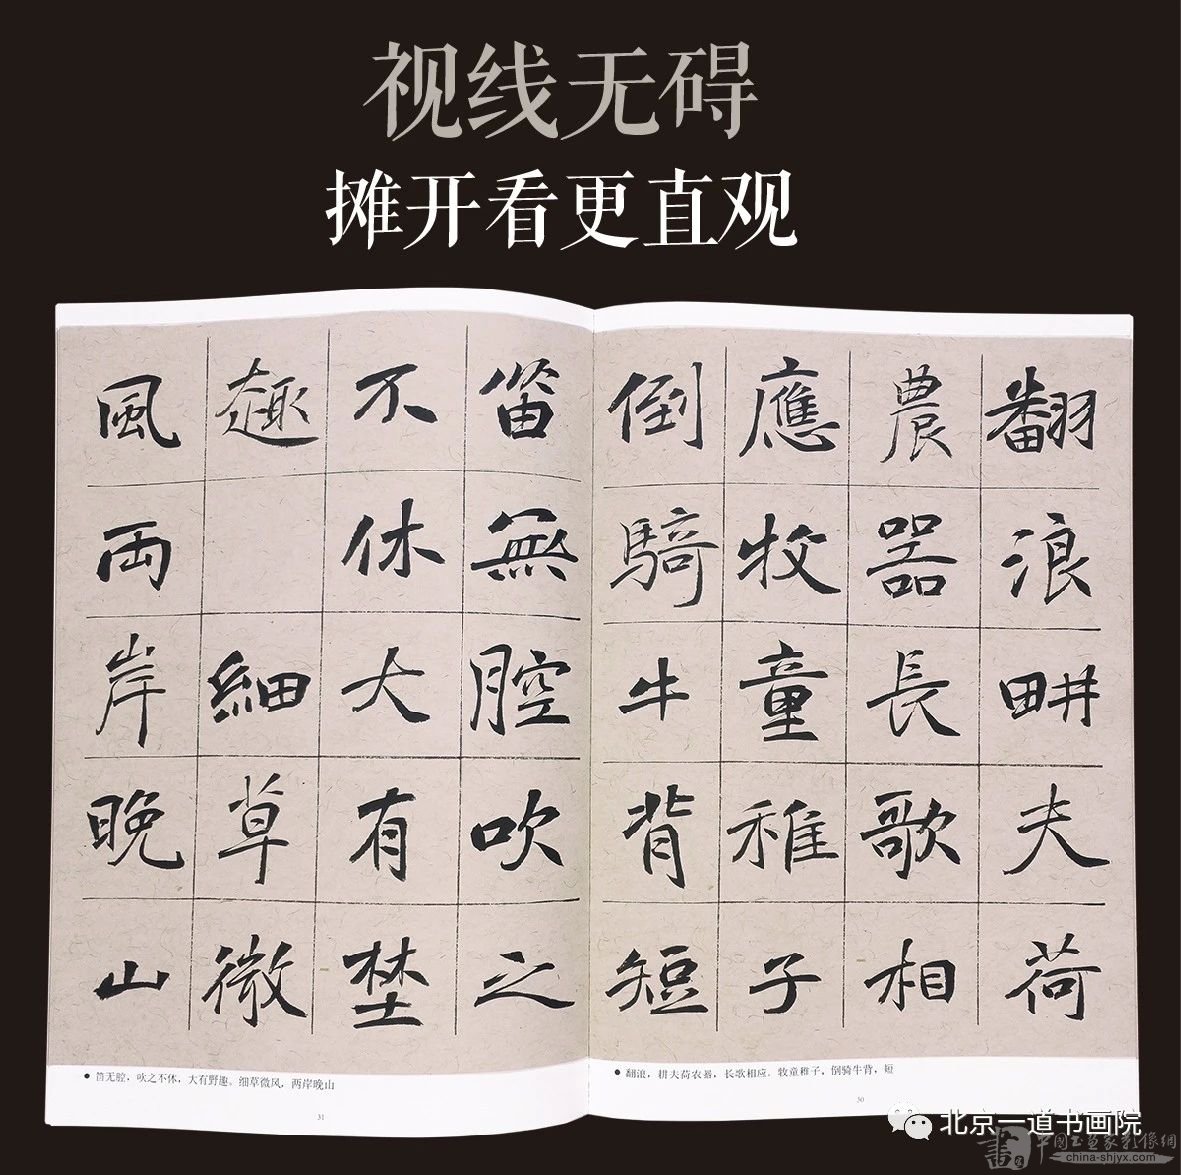 视线无碍
摊开看更直观
翻浪畊夫荷
農器長歌相
應牧童稚子
倒騎牛背短
笛無腔吹之
不休大有埜
趣 細草微
風両岸晚山
● 翻浪，耕夫荷农器，长歌相应。牧童稚子，倒骑牛背，短
30
● 笛无腔，吹之不休，大有野趣。细草微风，两岸晚山
31
北京一道书画院
china-shjyx.com